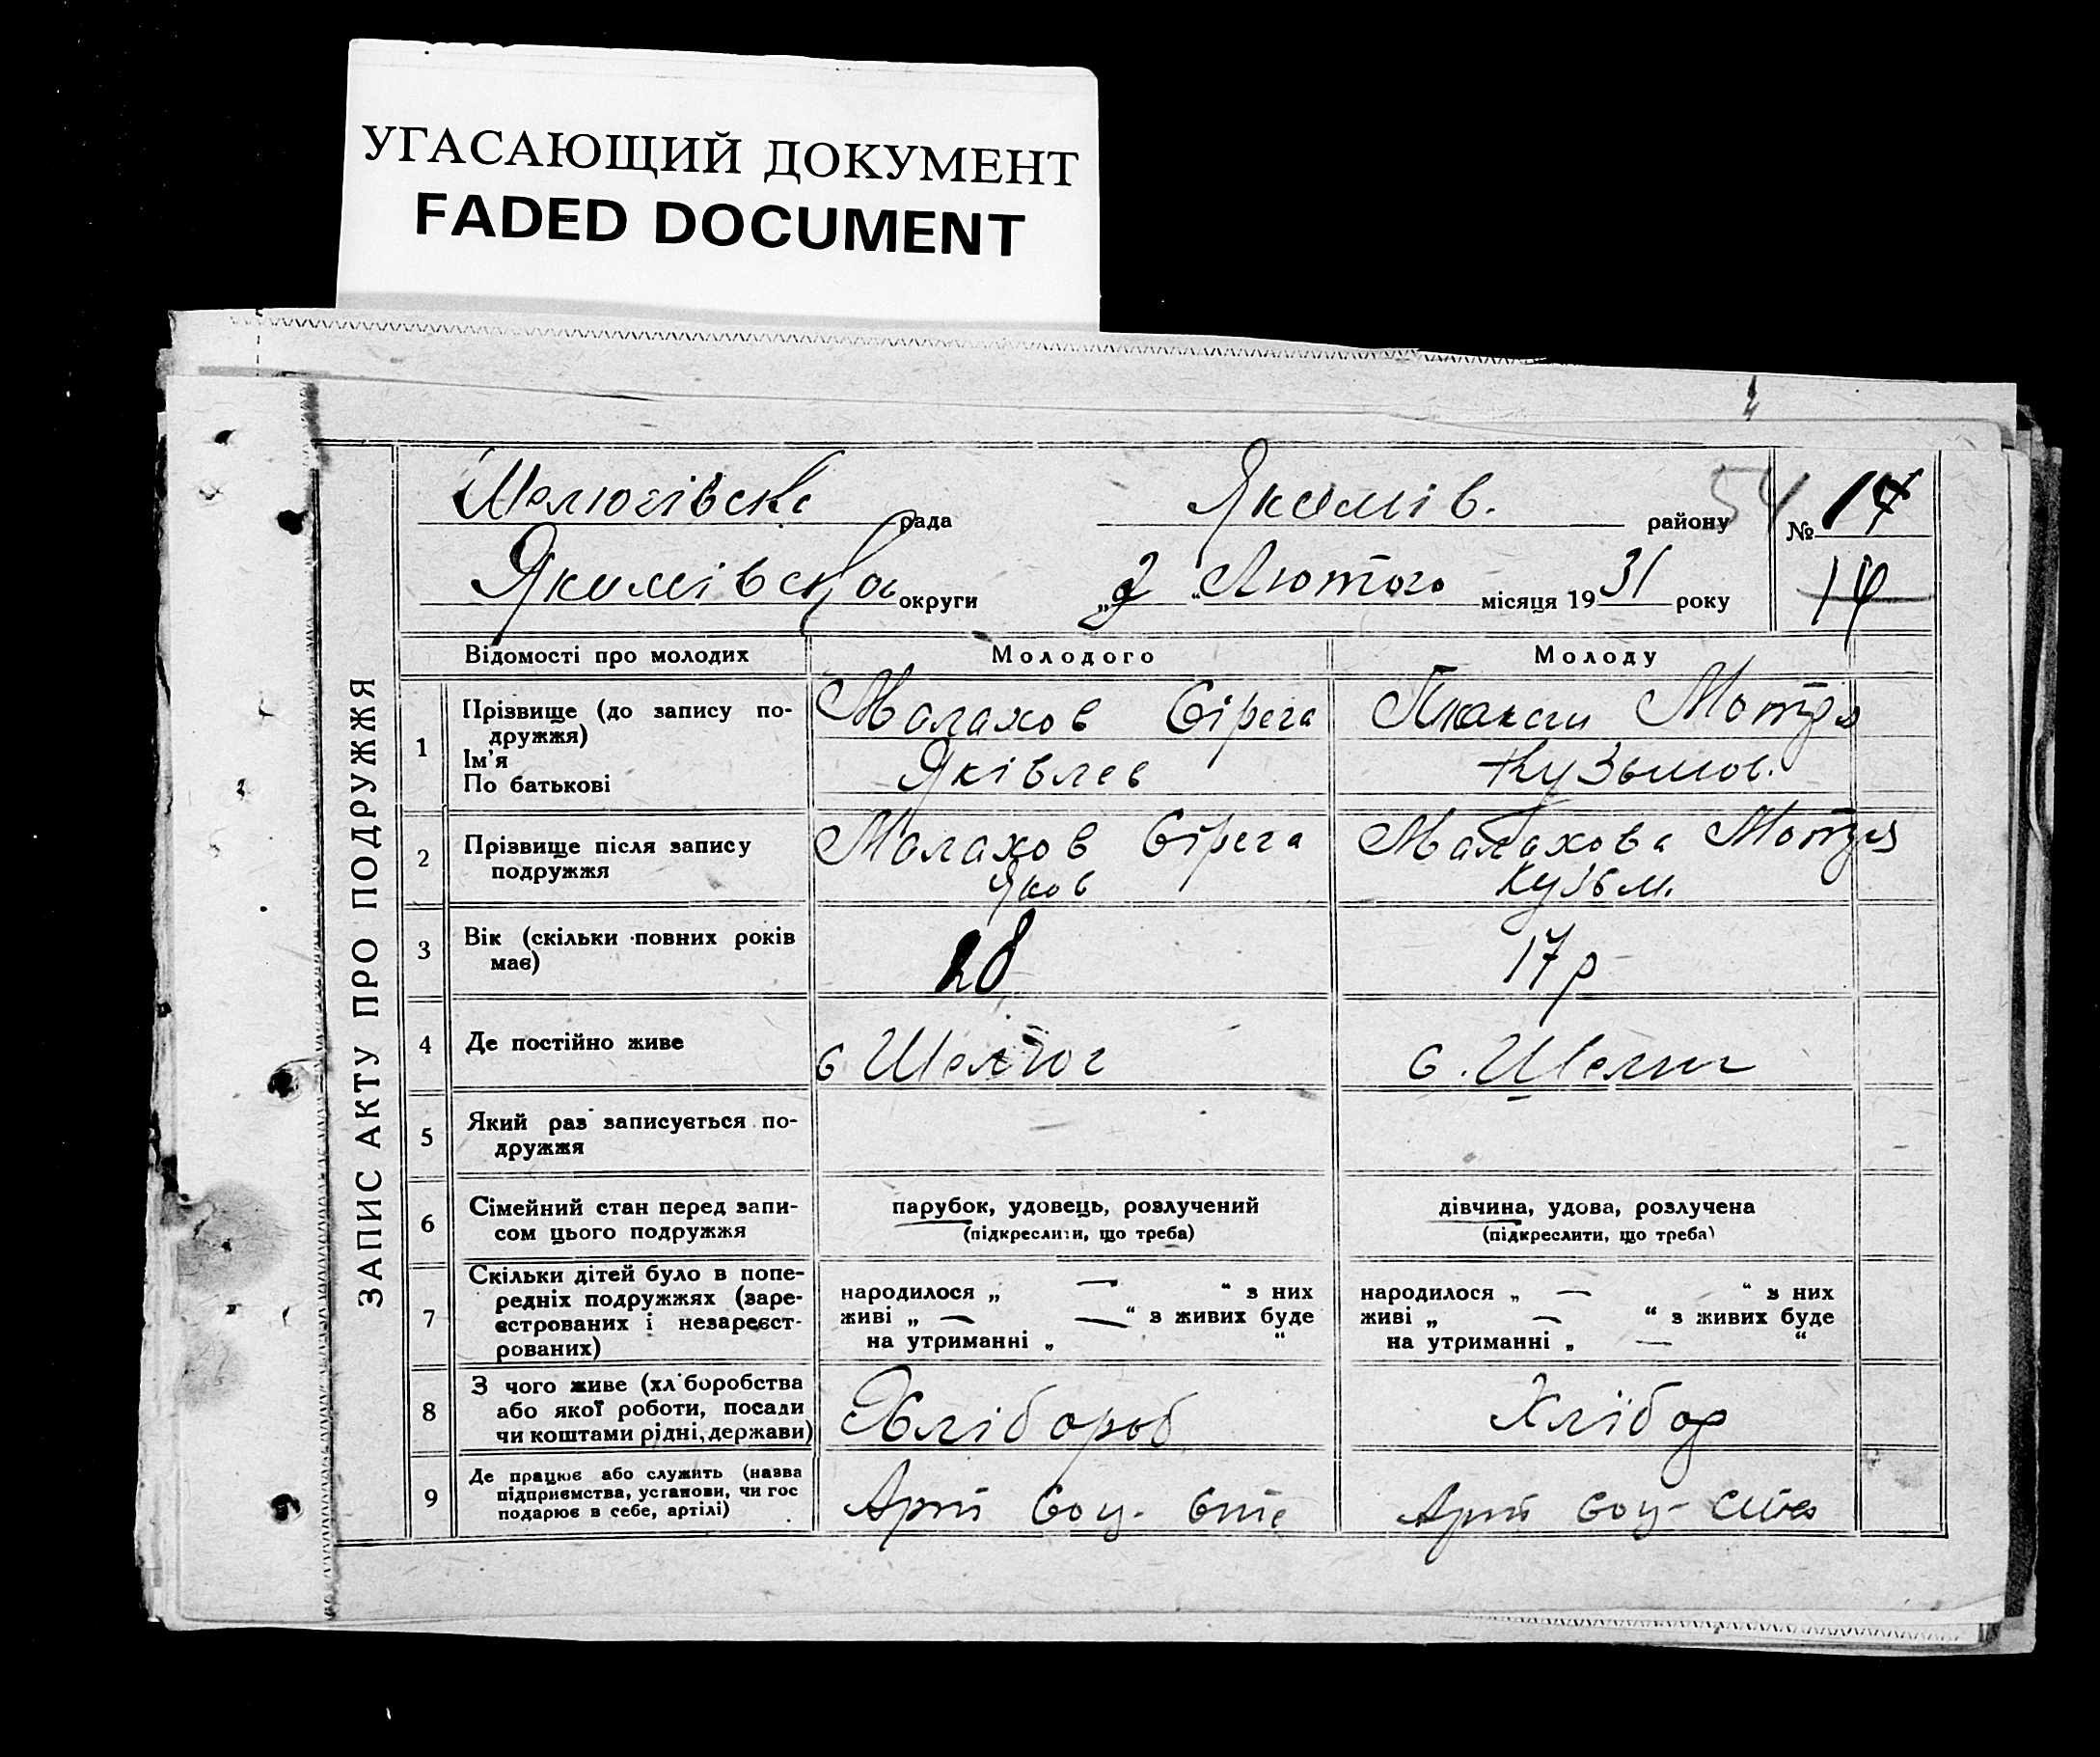 УГАСАЮЩИЙ ДОКУМЕНТ
FADED DOCUMENT
ЗАПИС АКТУ ПРО ПОДРУЖЖЯ
рада Якимів. району 54 № 14
Якимівська округи „2“ Лютого місяця 1931 року 14
Відомості про молодих Молодого Молоду
1 Прізвище (до запису по-
дружжя)
Ім'я
По батькові
Малахов Сірега
Яківлев
Мотря
Кузьмов.
2 Прізвище після запису
подружжя
Малахов Сірега
Яков
Малахова Мотря
Кузьм.
3 Вік (скільки повних років
має)
28
17 р
4 Де постійно живе
с Шелюг
с. Шелюг
5 Який раз записується по-
дружжя
6 Сімейний стан перед запи-
сом цього подружжя
парубок, удовець, розлучений
(підкреслити, що треба)
дівчина, удова, розлучена
(підкреслити, що треба)
7 Скільки дітей було в попе-
редніх подружжях (заре-
єстрованих і незареєст-
рованих)
народилося „ — “ з них
живі „ — — “ з живих буде
на утриманні „ “
народилося „ — “ з них
живі „ — “ з живих буде
на утриманні „ — “
8 З чого живе (хліборобства
або якої роботи, посади
чи коштами рідні, держави)
Хлібороб
Хлібор
9 Де працює або служить (назва
підприємства, установи, чи гос
подарює в себе, артілі)
Арт Соц-
Арт Соц-